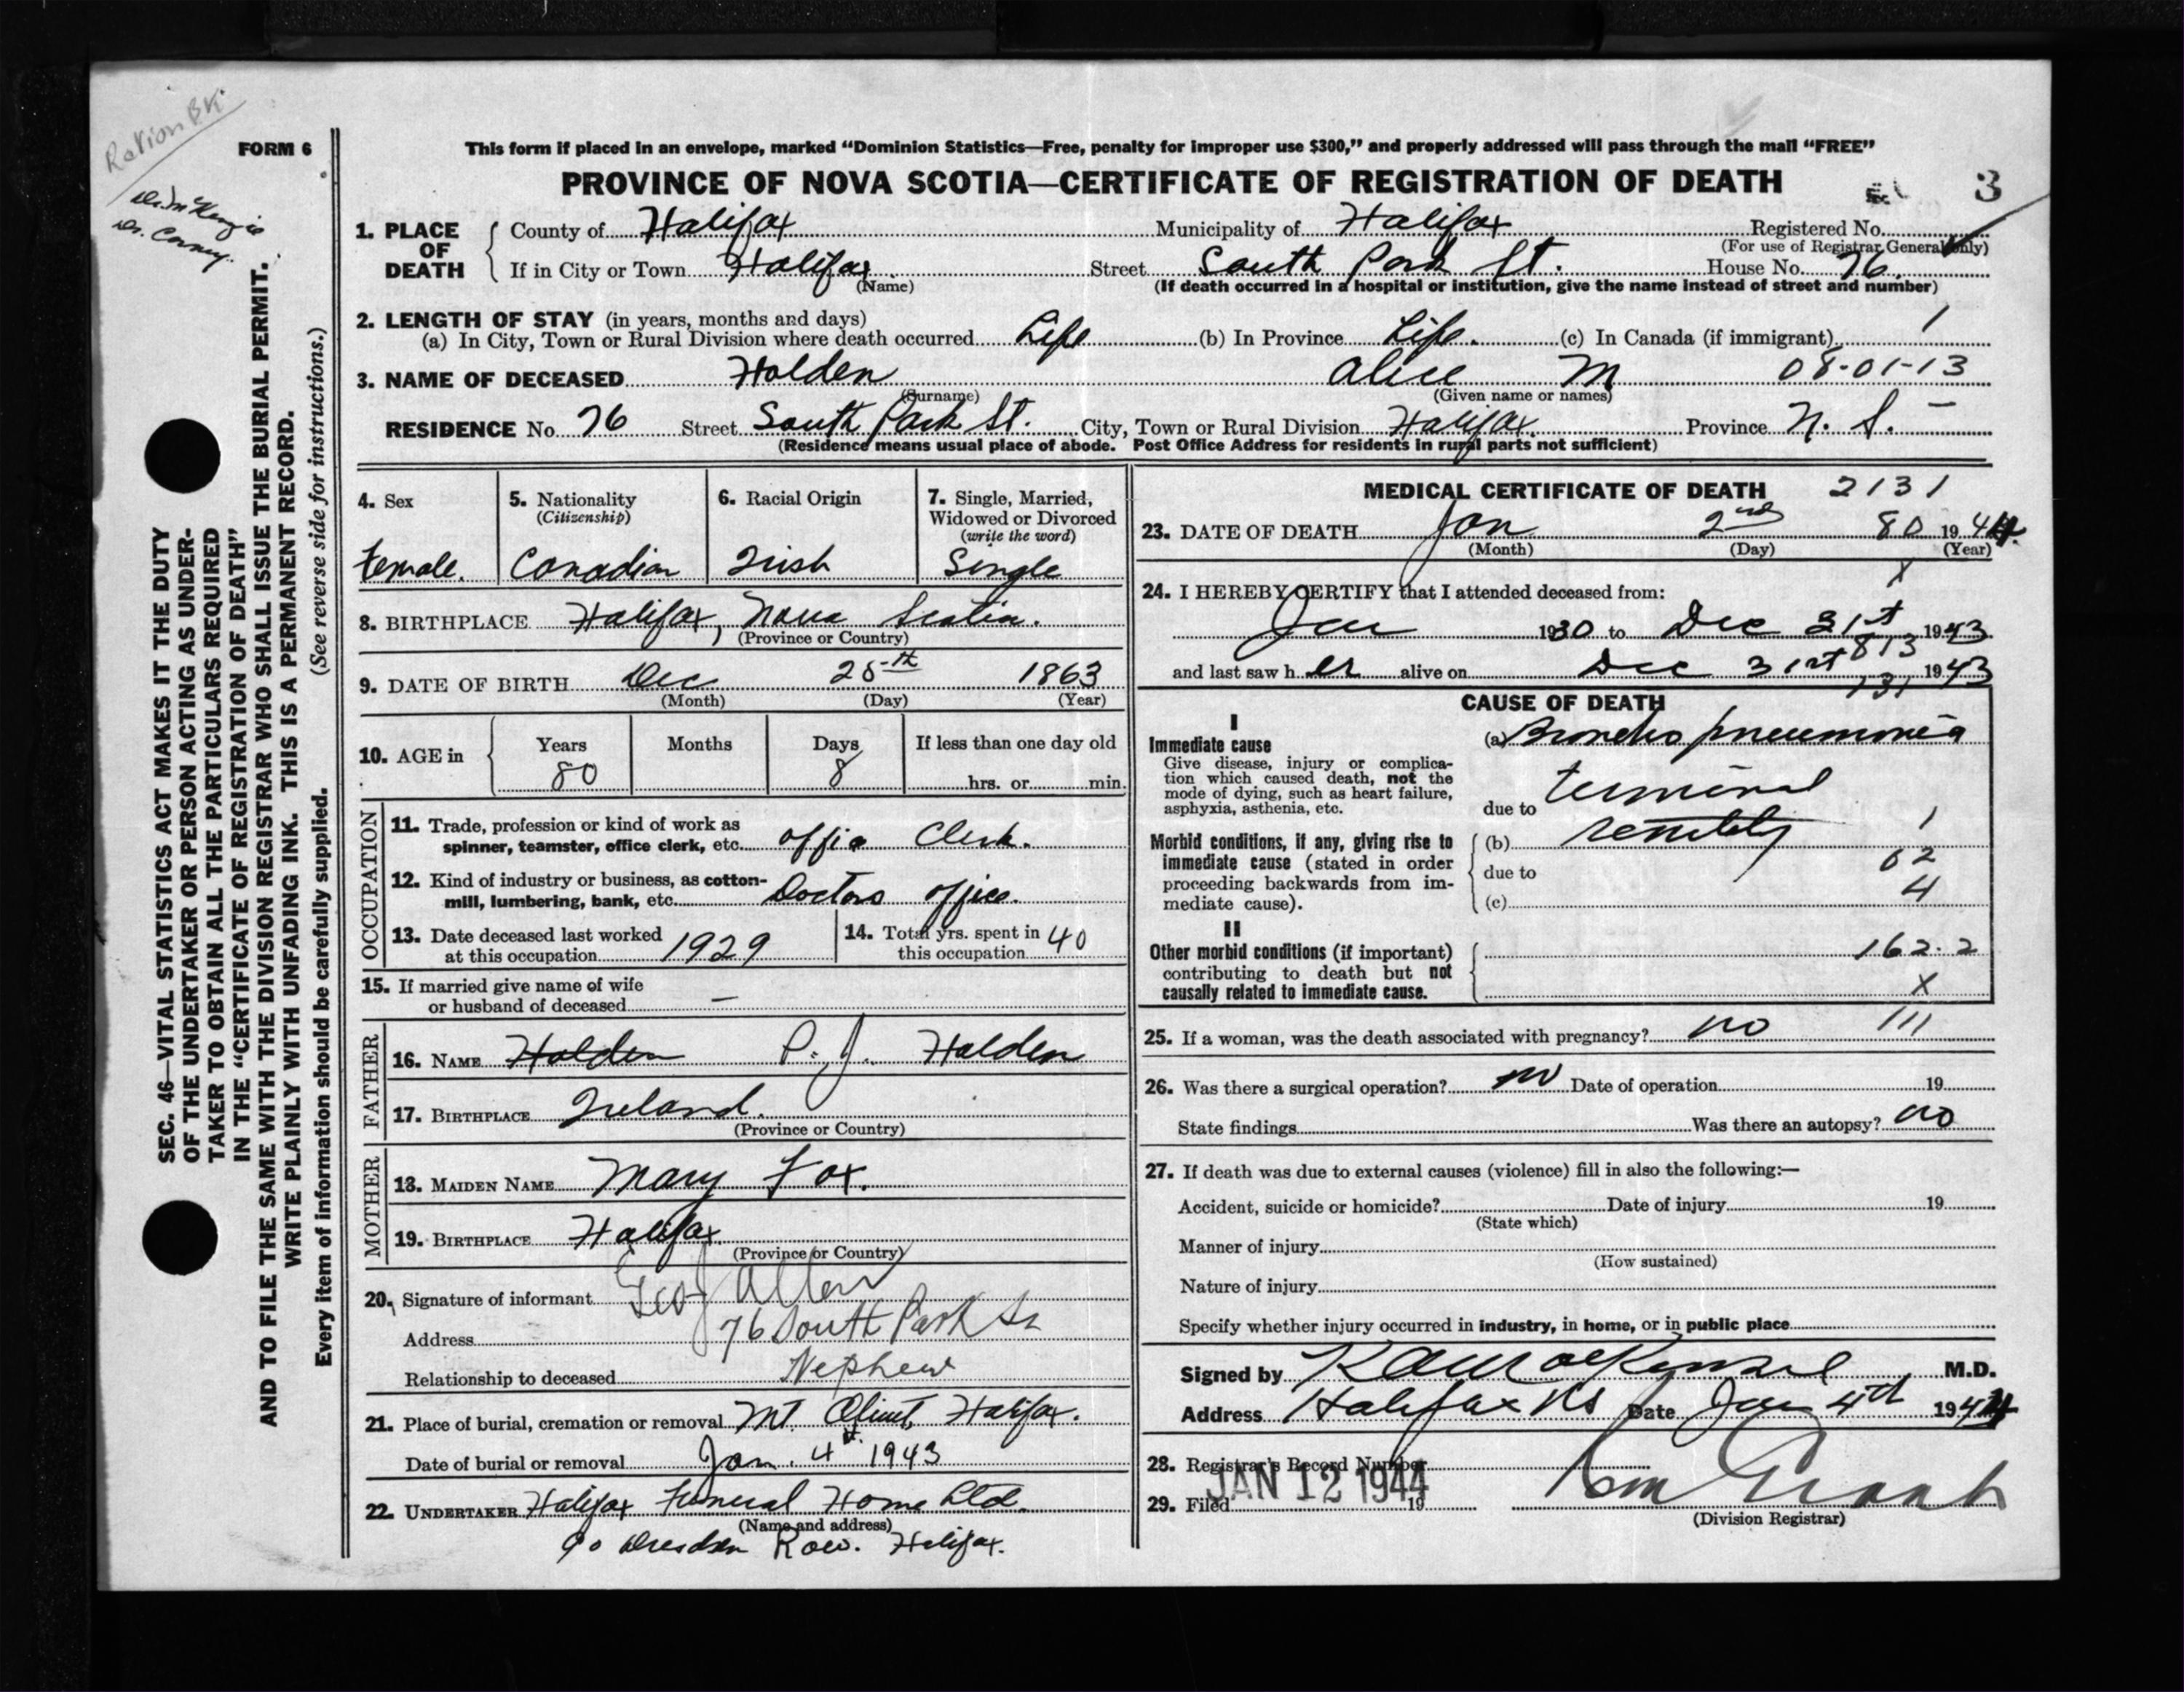 Ration BK
Dr. McKenzie
Dr. Corney.
FORM 6
This form if placed in an envelope, marked “Dominion Statistics—Free, penalty for improper use $300,” and properly addressed will pass through the mail “FREE”
PROVINCE OF NOVA SCOTIA—CERTIFICATE OF REGISTRATION OF DEATH 3
1. PLACE OF DEATH County of Halifax Municipality of Halifax Registered No.
(For use of Registrar General only)
If in City or Town Halifax Street South Park St. House No. 76.
(Name) (If death occurred in a hospital or institution, give the name instead of street and number)
2. LENGTH OF STAY (in years, months and days)
(a) In City, Town or Rural Division where death occurred Life (b) In Province Life. (c) In Canada (if immigrant) 1
3. NAME OF DECEASED Holden Alice M 08-01-13
(Surname) (Given name or names)
RESIDENCE No. 76 Street South Park St. City, Town or Rural Division Halifax. Province N. S. –
(Residence means usual place of abode. Post Office Address for residents in rural parts not sufficient)
4. Sex
female.
5. Nationality
(Citizenship)
Canadian
6. Racial Origin
Irish
7. Single, Married,
Widowed or Divorced
(write the word)
Single
8. BIRTHPLACE Halifax, Nova Scotia.
(Province or Country)
9. DATE OF BIRTH Dec 25th 1863
(Month) (Day) (Year)
10. AGE in Years Months Days If less than one day old
80 8 hrs. or min.
OCCUPATION
11. Trade, profession or kind of work as
spinner, teamster, office clerk, etc. Office Clerk.
12. Kind of industry or business, as cotton-
mill, lumbering, bank, etc. Doctors office.
13. Date deceased last worked
at this occupation 1929
14. Total yrs. spent in
this occupation 40
15. If married give name of wife
or husband of deceased —
FATHER
16. NAME Holden P. J. Holden
17. BIRTHPLACE Ireland.
(Province or Country)
MOTHER
18. MAIDEN NAME Mary Fox.
19. BIRTHPLACE Halifax
(Province or Country)
20. Signature of informant Geo J Allen
Address 76 South Park St
Relationship to deceased Nephew
21. Place of burial, cremation or removal Mt. Olivet, Halifax.
Date of burial or removal Jan. 4th 1943
22. UNDERTAKER Halifax Funeral Home Ltd.
(Name and address)
90 Dresden Row. Halifax.
MEDICAL CERTIFICATE OF DEATH 2131
23. DATE OF DEATH Jan 2nd 80 1944.
(Month) (Day) (Year)
x
24. I HEREBY CERTIFY that I attended deceased from:
Jan 1930 to Dec 31st 1943
813
and last saw her alive on Dec 31st 1943
131
CAUSE OF DEATH
I
Immediate cause
Give disease, injury or complica-
tion which caused death, not the
mode of dying, such as heart failure,
asphyxia, asthenia, etc.
(a) Broncho pneumonia
terminal
due to
Morbid conditions, if any, giving rise to
immediate cause (stated in order
proceeding backwards from im-
mediate cause).
(b) senility 1
due to 02
(c) 4
II
Other morbid conditions (if important)
contributing to death but not
causally related to immediate cause.
162.2
X
25. If a woman, was the death associated with pregnancy? no 111
26. Was there a surgical operation? no Date of operation 19
State findings Was there an autopsy? no
27. If death was due to external causes (violence) fill in also the following:—
Accident, suicide or homicide? Date of injury 19
(State which)
Manner of injury
(How sustained)
Nature of injury
Specify whether injury occurred in industry, in home, or in public place
Signed by K A MacKenzie M.D.
Address Halifax NS Date Jan 4th 1944
28. Registrar's Record Number
29. Filed JAN 12 1944 19
(Division Registrar)
SEC. 46—VITAL STATISTICS ACT MAKES IT THE DUTY
OF THE UNDERTAKER OR PERSON ACTING AS UNDER-
TAKER TO OBTAIN ALL THE PARTICULARS REQUIRED
IN THE “CERTIFICATE OF REGISTRATION OF DEATH”
AND TO FILE THE SAME WITH THE DIVISION REGISTRAR WHO SHALL ISSUE THE BURIAL PERMIT.
WRITE PLAINLY WITH UNFADING INK. THIS IS A PERMANENT RECORD.
Every item of information should be carefully supplied. (See reverse side for instructions.)